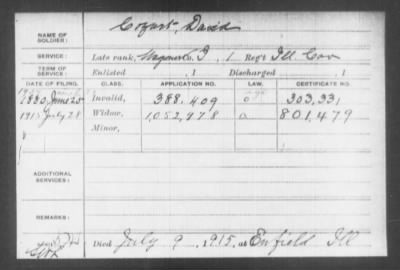 NAME OF SOLDIER: Cozart, David
SERVICE: Late rank, Wagoner Co. I, 1 Reg't Ill. Cav
TERM OF SERVICE: Enlisted , 1 Discharged , 1
DATE OF FILING. CLASS. APPLICATION NO. LAW. CERTIFICATE NO.
1880 June 25 Invalid, 388,409 303,331
1915 July 28 Widow, 1,052,978 a 801,479
Minor,
ADDITIONAL SERVICES:
REMARKS:
Died July 9, 1915, at Enfield Ill